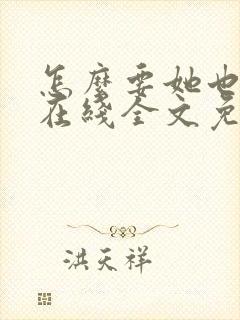 怎麽要她也
在綫全文免
洪天祥